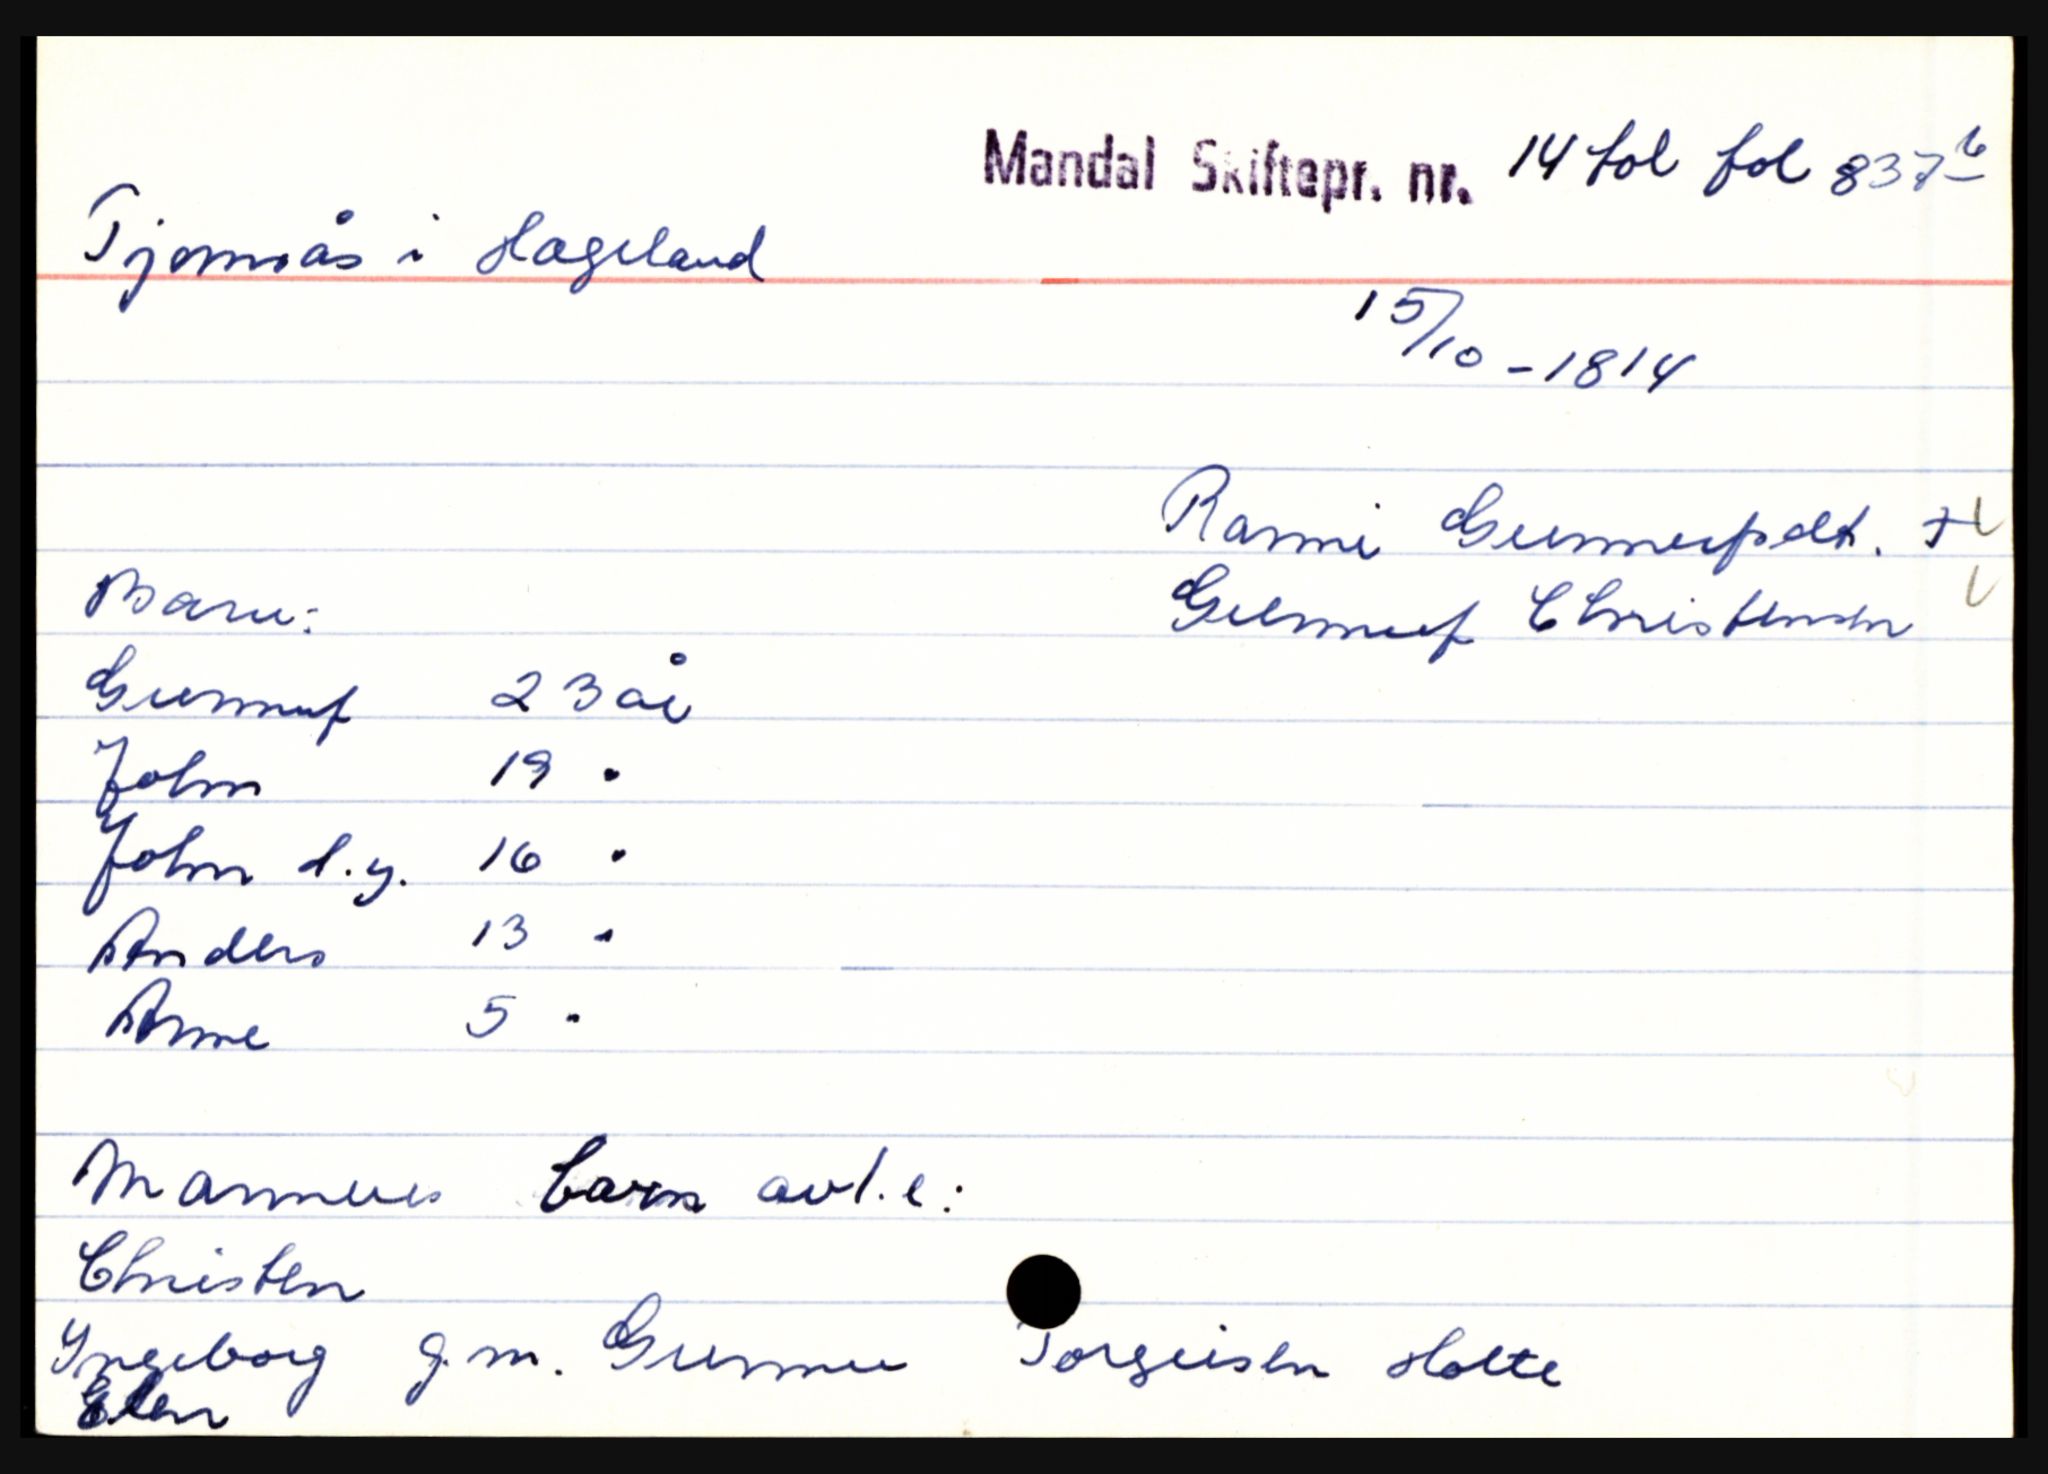 Mandal Skiftepr. nr. 14 fol fol 837b
Tjomsås i Hægeland
15/10 - 1814
Ranni Gunnufsdt. +
Barn: Gunnuf Christensen
Gunnuf 23 år
John 19 "
John d.y. 16 "
Anders 13 "
Anne 5 "
Mannens barn av l.e:
Christen
Ingeborg g.m. Gunnar Torgeisen Holte
Elen